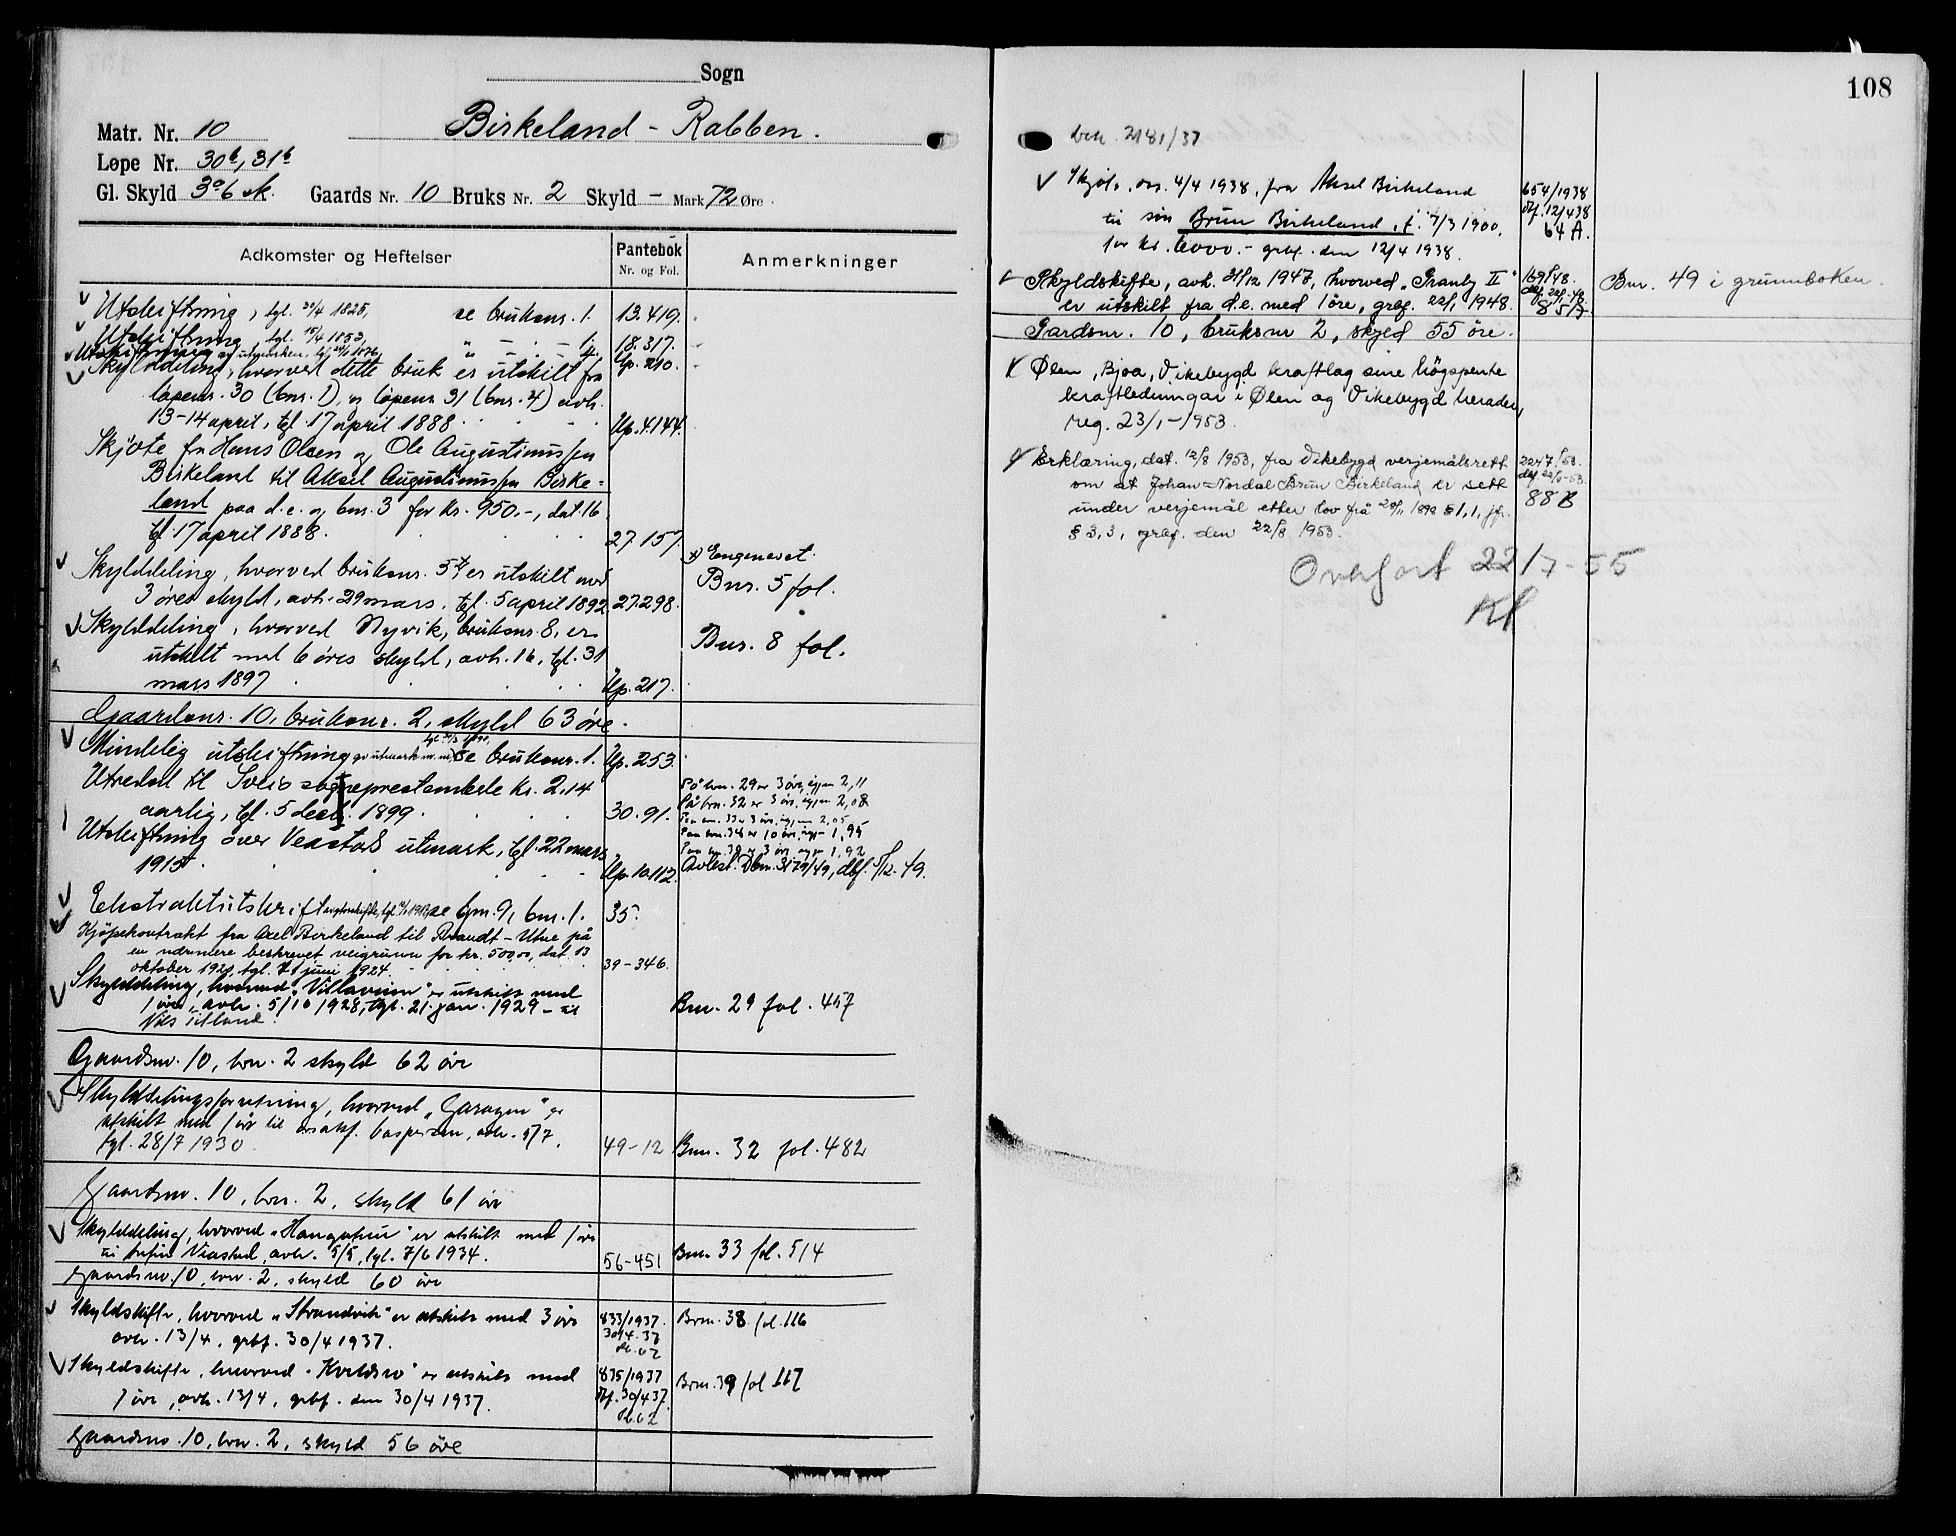 Sogn
Matr. Nr. 10 Birkeland - Rabben.
Løpe Nr. 30b, 31b
Gl. Skyld Gaards Nr. 10 Bruks Nr. 2 Skyld - Mark 72 Øre.
Adkomster og Heftelser Pantebok Nr. og Fol. Anmerkninger
Utskiftning, tgl. 1825, se bruksnr. 1. 13.419.
Utskiftning, tgl. 15/4 1853, " - . - 1. 18.317.
Utskiftning av utmarken, tgl. " - . - 4. Up. 210.
Skylddeling, hvorved dette bruk er utskilt fra
løpenr. 30 (bnr. 1), og løpenr 31 (bnr. 4) avh.
13-14 april, tgl. 17 april 1888. Up. 4.144.
Skjøte fra Hans Olsen og Ole Augustinussen
Birkeland til Aksel Augustinussen Birke=
land paa d.e. og bnr. 3 for kr. 950.-, dat. 16,
tgl. 17 april 1888. 27.157.
Skylddeling, hvorved bruksnr. 5 x) er utskilt med x) Engeneset.
3 øres skyld, avh. 29 mars, tgl. 5 april 1892. 27.298. Bnr. 5 fol.
Skylddeling, hvorved Nyvik, bruksnr. 8, er Bnr. 8 fol.
utskilt med 6 øres skyld, avh. 16, tgl. 31
mars 1897. Up. 217.
Gaardsnr. 10, bruksnr. 2, skyld 63 øre.
Mindelig utskiftning av utmark m.m., se bruksnr. 1. Up. 253.
Utredsel til Sveio sogneprestembede kr. 2,14 På bnr. 29 er 3 øre, igjen 2,11
aarlig, tgl. 5 decb. 1899. 30.91. På bnr. 32 er 3 øre, igjen 2,08
Paa bnr. 33 er 3 øre, igjen 2,05
Paa bnr. 38 er 10 øre, igjen 1,95
Paa bnr. 39 er 3 øre, igjen 1,92
Utskiftning over Veastad utmark, tgl. 22 mars
1915. Up. 10.112. Avløst. Dbnr. 3179/49, dbf. 5/12-49.
Ekstraktutskrift se gnr. 9, bnr. 1. 35.
Kjøpekontrakt fra Axel Birkeland til Brandt - Utne på
en nærmere beskrevet veigrunn for kr. 500,00, dat. 13
oktober 1920, tgl. juni 1924. 39-346.
Skylddeling, hvorved "Villavium" er utskilt med
1 øre, avh. 5/10 1928, tgl. 21. jan. 1929 - til Bnr. 29 fol. 457
Nils
Gaardsnr. 10, bnr. 2 skyld 62 øre
Skylddelingsforretning, hvorved "Garagen" er
utskilt med 1 øre til Caspersen, avh. 5/7,
tgl. 28/7 1930. 49-12 Bnr. 32 fol. 482
Gaardsnr. 10, bnr. 2, skyld 61 øre
Skylddeling, hvorved "Haugatun" er utskilt med 1 øre
til Veastad, avh. 5/5, tgl. 7/6 1934. 56-451 Bnr. 33 fol. 514
Gaardsnr. 10, bnr. 2, skyld 60 øre
Skyldskifte, hvorved "Strandvik" er utskilt med 3 øre 833/1937. Bnr. 38 fol. 116
avh. 13/4, grbf. 30/4 1937. 30/4.37 Pb. 62
Skyldskifte, hvorved "Kveldsro" er utskilt med 835/1937 Bnr. 39 fol 117
1 øre, avh. 13/4, grbf. den 30/4 1937. Dbf. 30/4 37. Pb. 62
Gaardsnr. 10, bnr. 2, skyld 56 øre
108
2181/37
Skjøte, 4/4 1938, fra Aksel Birkeland 654/1938
til søn Brun Birkeland, f. 7/3 1900, Dbf. 12/4 38
for kr. 6000.- grbf. den 12/4 1938. 64 A.
Skyldskifte, avh. 31/12 1947, hvorved "Granly II" 169/48. Bnr. 49 i grunnboken.
er utskilt fra d.e. med 1 øre, grbf. 22/1 1948.
Gardsnr. 10, bruksnr 2, skyld 55 øre.
Ølen, Bjoa, Vikebygd kraftlag sine högspente
kraftledningar i Ølen og Vikebygd herader,
reg. 23/1-1953.
Erklæring, dat. 12/8 1953, fra Vikebygd verjemålsrett 2247/53.
om at Johan Nordal Brun Birkeland er sett dbf. 22/8-53.
under verjemål etter lov frå 28/11 1898 § 1, 1, jfr. 88 B
§ 3, 3, grbf. den 22/8 1953.
Overført 22/7-55